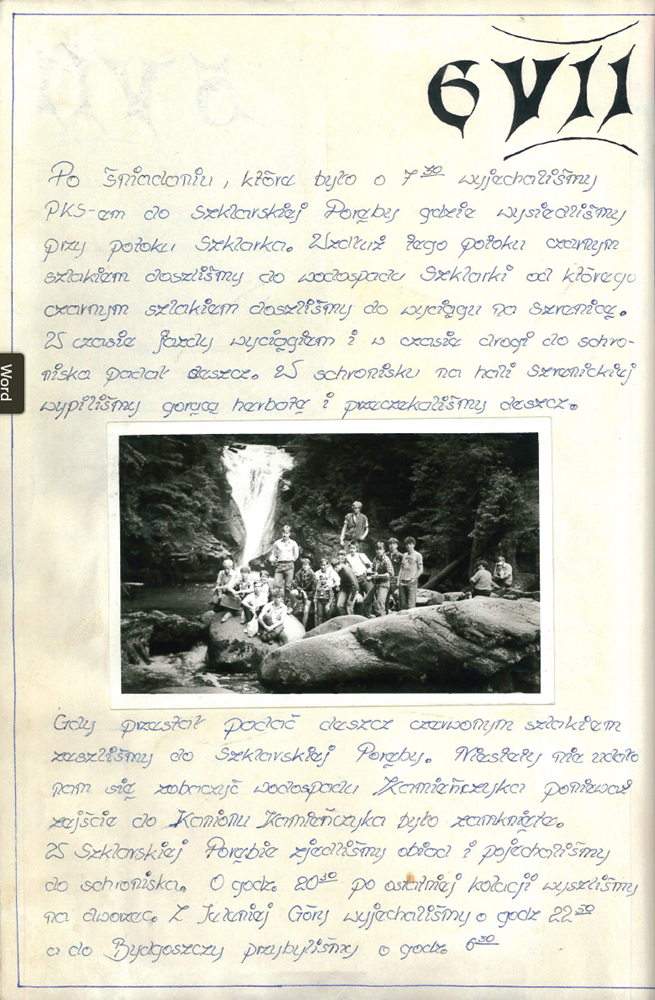 6 VII
Po śniadaniu, które było o 7³⁰ wyjechaliśmy
PKS-em do Szklarskiej Poręby gdzie wysiedliśmy
przy potoku Szklarka. Wzdłuż tego potoku czarnym
szlakiem doszliśmy do wodospadu Szklarki od którego
czarnym szlakiem doszliśmy do wyciągu na Szrenicę.
W czasie jazdy wyciągiem i w czasie drogi do schro-
niska padał deszcz. W schronisku na hali Szrenickiej
wypiliśmy gorącą herbatę i przeczekaliśmy deszcz.
Word
Gdy przestał padać deszcz czerwonym szlakiem
zeszliśmy do Szklarskiej Poręby. Niestety nie udało
nam się zobaczyć wodospadu Kamieńczyka ponieważ
zejście do Kanionu Kamieńczyka było zamknięte.
W Szklarskiej Porębie zjedliśmy obiad i pojechaliśmy
do schroniska. O godz. 20³⁰ po ostatniej kolacji wyszliśmy
na dworzec. Z Jeleniej Góry wyjechaliśmy o godz 22⁵⁰
a do Bydgoszczy przybyliśmy o godz. 6³⁰